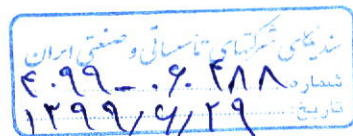 سندیکای شرکتهای تاسیساتی و صنعتی ایران
شماره: ۴۰۹۹-۰۶۰۴۸۸
تاریخ: ۱۳۹۹/۶/۲۹